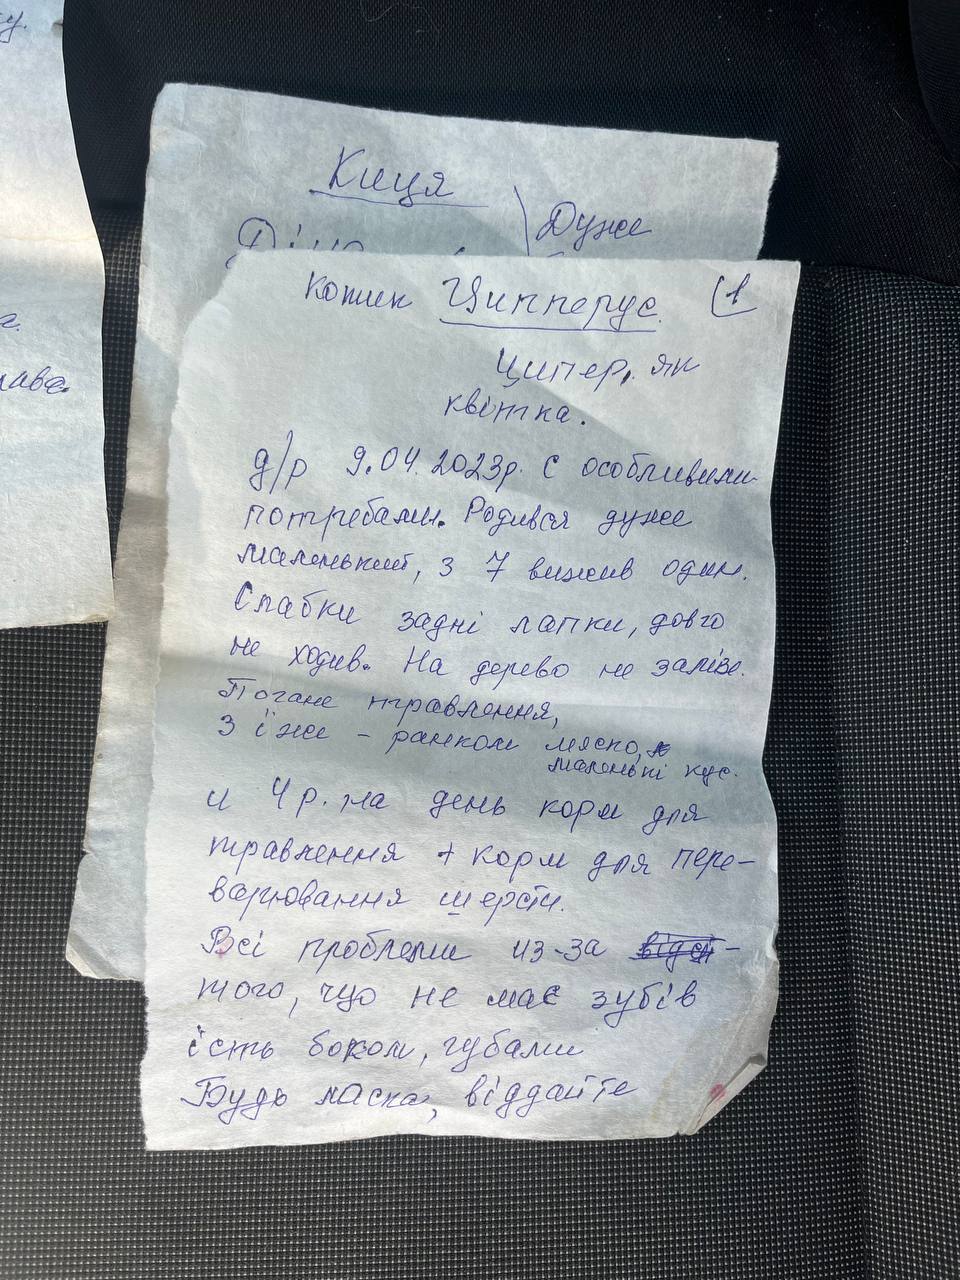 у.
г.
лаве.
Киця
Дуже
котик Ципперус. (1
Ципер, як
квітка.
д/р 9.04.2023р. С особливими
потребами. Родився дуже
маленький, з 7 вижив один.
Слабки задні лапки, довго
не ходив. На дерево не залізе.
Погане травлення,
З їжі - ранком мяско,
маленькі кус.
и 4 р. на день корм для
травлення + корм для пере-
варювання шерсти.
Всі проблеми из-за
того, що не має зубів
їсть боком, губами
Будь ласка, віддайте